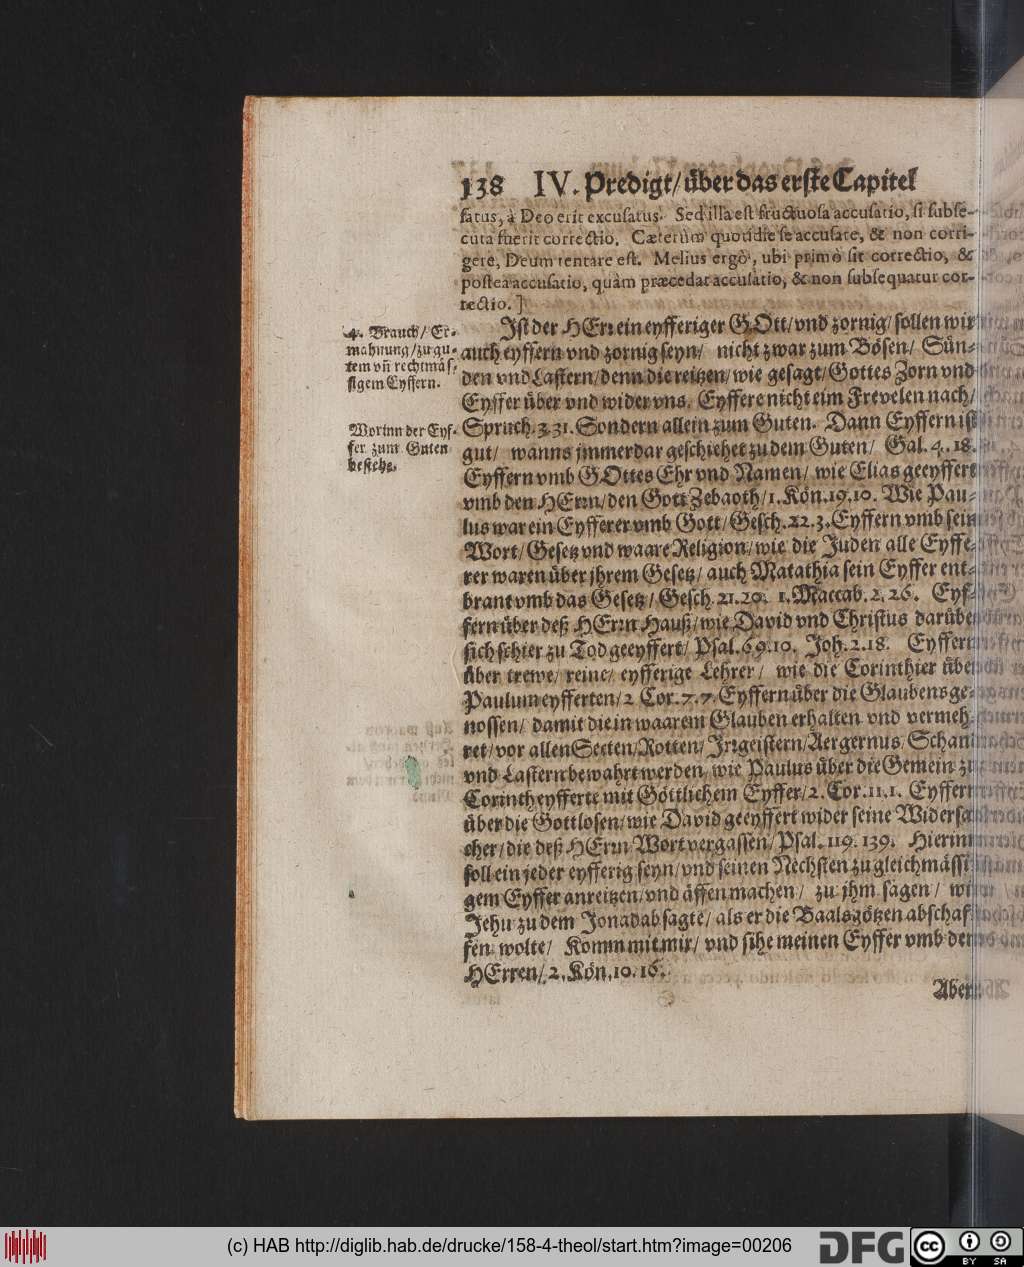 138 IV. Predigt/ über das erste Capitel
satus, à Deo erit excusatus. Sed illa est fructuosa accusatio, si subse-
cuta fuerit correctio. Cæterùm quotidie se accusare, & non corri-
gere, Deum tentare est. Melius ergò, ubi primò sit correctio, &
posteà accusatio, quàm præcedat accusatio, & non subsequatur cor-
rectio. ]
4. Brauch/ Er-
mahnung/ zu gu-
tem vñ rechtmäs-
sigem Eyffern.
Ist der HErr ein eyfferiger GOtt/ vnd zornig/ sollen wir
auch eyffern vnd zornig seyn/ nicht zwar zum Bösen/ Sün-
den vnd Lastern/ denn die reitzen/ wie gesagt/ Gottes Zorn vnd
Eyffer über vnd wider vns. Eyffere nicht eim Frevelen nach/
Worinn der Eyf-
fer zum Guten
bestehe.
Spruch. 3. 31. Sondern allein zum Guten. Dann Eyffern ist
gut/ wanns jmmerdar geschiehet zu dem Guten/ Gal. 4. 18.
Eyffern vmb GOttes Ehr vnd Namen/ wie Elias geeyffert
vmb den HErrn/ den Gott Zebaoth/ 1. Kön. 19. 10. Wie Pau-
lus war ein Eyfferer vmb Gott/ Gesch. 22. 3. Eyffern vmb sein
Wort/ Gesetz vnd waare Religion/ wie die Juden alle Eyffe-
rer waren über jhrem Gesetz/ auch Matathia sein Eyffer ent-
brant vmb das Gesetz/ Gesch. 21. 20. 1. Maccab. 2. 26. Eyf-
fern über deß HErrn Hauß/ wie David vnd Christus darüber
sich schier zu Tod geeyffert/ Psal. 69. 10. Joh. 2. 18. Eyffern
über trewe/ reine/ eyfferige Lehrer/ wie die Corinthier über
Paulum eyfferten/ 2 Cor. 7. 7. Eyffern über die Glaubensge-
nossen/ damit die in waarem Glauben erhalten vnd vermeh-
ret/ vor allen Secten/ Rotten/ Irrgeistern/ Aergernus/ Schan
vnd Lastern bewahrt werden/ wie Paulus über die Gemein zu
Corinth eyfferte mit Göttlichem Eyffer/ 2. Cor. 11. 1. Eyffern
über die Gottlosen/ wie David geeyffert wider seine Widersa-
cher/ die deß HErrn Wort vergassen/ Psal. 119. 139. Hierinn
soll ein jeder eyfferig seyn/ vnd seinen Nechsten zu gleichmässi-
gem Eyffer anreitzen/ vnd äffen machen/ zu jhm sagen/ wie
Jehu zu dem Jonadab sagte/ als er die Baalsgötzen abschaf-
fen wolte/ Komm mit mir/ vnd sihe meinen Eyffer vmb den
HErren/ 2. Kön. 10. 16.
Aber
(c) HAB http://diglib.hab.de/drucke/158-4-theol/start.htm?image=00206
DFG
cc BY SA